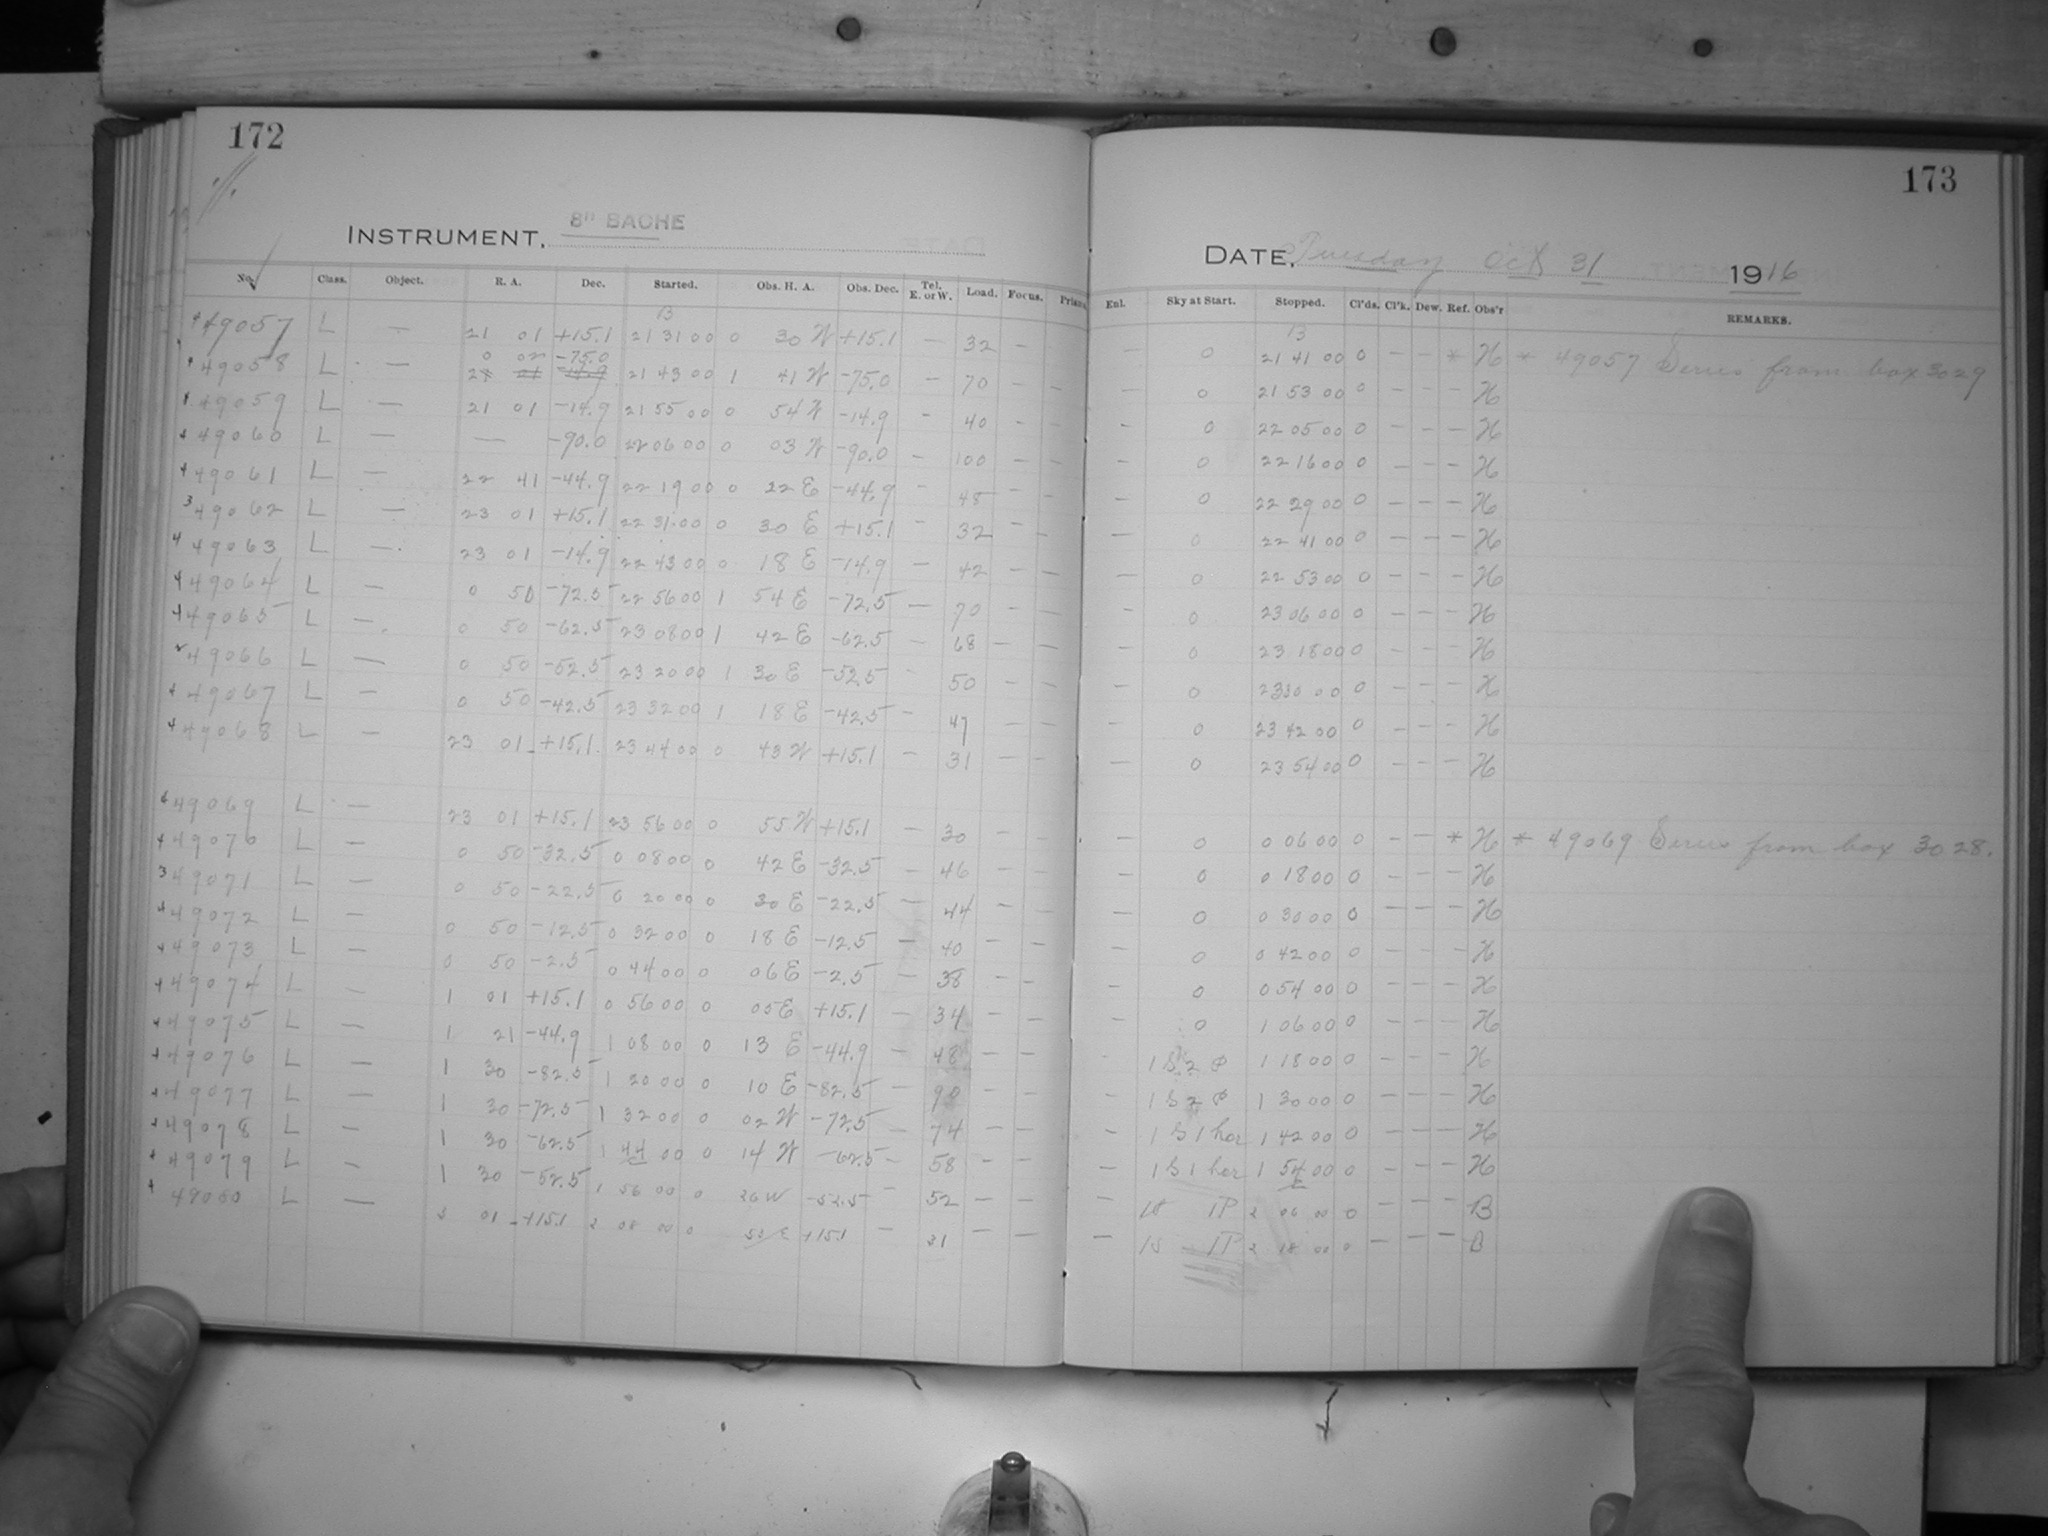 172
INSTRUMENT, 8" BACHE
No. Class. Object. R. A. Dec. Started. Obs. H. A. Obs. Dec. Tel. E. or W. Load. Focus. Prism.
49057 L — 21 01 +15.1 21 31 00 0 30 W +15.1 — 32 — —
49058 L — 0 02 -75.0 21 43 00 1 41 W -75.0 — 70 — —
49059 L — 21 01 -14.9 21 55 00 0 54 W -14.9 - 40 - -
49060 L — — -90.0 22 06 00 0 03 W -90.0 — 100 — —
49061 L — 22 41 -44.9 22 19 00 0 22 E -44.9 - 48 — —
49062 L — 23 01 +15.1 22 31 00 0 30 E +15.1 - 32 — —
49063 L — 23 01 -14.9 22 43 00 0 18 E -14.9 — 42 — —
49064 L — 0 50 -72.5 22 56 00 1 54 E -72.5 — 70 — —
49065 L — 0 50 -62.5 23 08 00 1 42 E -62.5 — 68 — —
49066 L — 0 50 -52.5 23 20 00 1 30 E -52.5 - 50 — —
49067 L — 0 50 -42.5 23 32 00 1 18 E -42.5 — 47 — —
49068 L — 23 01 +15.1 23 44 00 0 43 W +15.1 — 31 — —
49069 L — 23 01 +15.1 23 56 00 0 55 W +15.1 — 30 — —
49070 L — 0 50 -32.5 0 08 00 0 42 E -32.5 — 46 — —
49071 L — 0 50 -22.5 0 20 00 0 30 E -22.5 — 44 — —
49072 L — 0 50 -12.5 0 32 00 0 18 E -12.5 — 40 — —
49073 L — 0 50 -2.5 0 44 00 0 06 E -2.5 — 38 — -
49074 L — 1 01 +15.1 0 56 00 0 05 E +15.1 — 34 — —
49075 L — 1 21 -44.9 1 08 00 0 13 E -44.9 — 48 — —
49076 L — 1 30 -82.5 1 20 00 0 10 E -82.5 — 90 — —
49077 L — 1 30 -72.5 1 32 00 0 02 W -72.5 — 74 — —
49078 L — 1 30 -62.5 1 44 00 0 14 W -62.5 — 58 — —
49079 L — 1 30 -52.5 1 56 00 0 26 W -52.5 — 52 — —
49080 L — 01 +15.1 2 08 00 0 E +15.1 — 31 — —
173
DATE, Tuesday Oct 31 1916
Enl. Sky at Start. Stopped. Cl'ds. Cl'k. Dew. Ref. Obs'r REMARKS.
— 0 21 41 00 0 — — * H * 49057 Series from box 3029
— 0 21 53 00 0 — — — H
— 0 22 05 00 0 — — — H
— 0 22 16 00 0 — — — H
— 0 22 29 00 0 — — — H
— 0 22 41 00 0 — — — H
— 0 22 53 00 0 — — — H
— 0 23 06 00 0 — — — H
— 0 23 18 00 0 — — — H
— 0 23 30 00 0 — — — H
— 0 23 42 00 0 — — — H
— 0 23 54 00 0 — — — H
— 0 0 06 00 0 — — * H * 49069 Series from box 3028.
— 0 0 18 00 0 — — — H
— 0 0 30 00 0 — — — H
— 0 0 42 00 0 — — — H
— 0 0 54 00 0 — — — H
— 0 1 06 00 0 — — — H
1 S 2 P 1 18 00 0 — — — H
— 1 S 2 P 1 30 00 0 — — — H
— 1 S 1 hor 1 42 00 0 — — — H
— 1 S 1 hor 1 54 00 0 — — — H
— 1S 1P 2 06 00 0 — — — B
— 1S 1P 2 18 00 0 — — — B